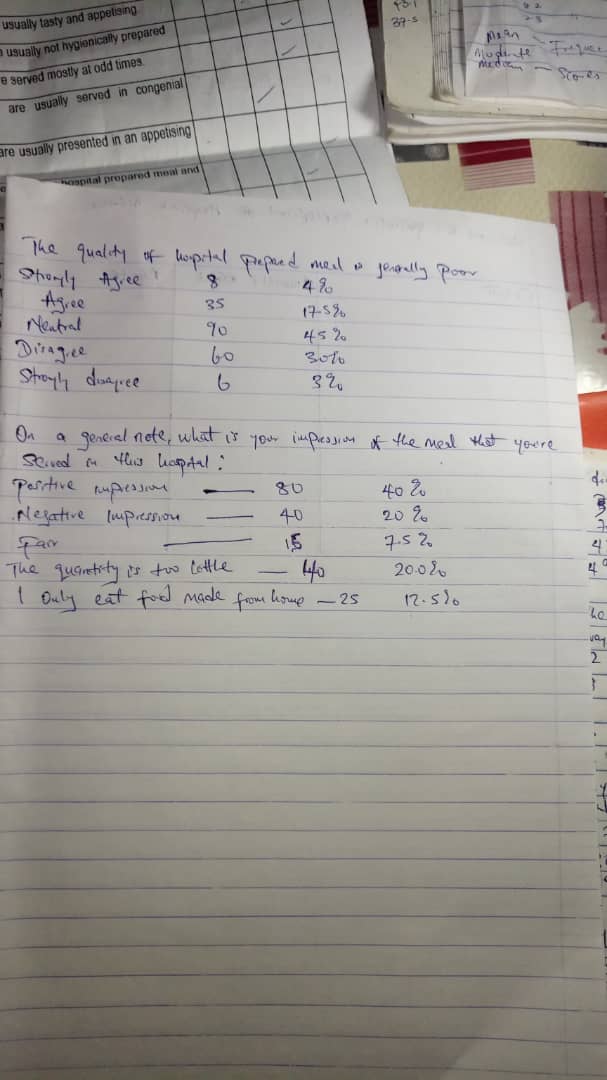 usually tasty and appetising
usually not hygienically prepared
e served mostly at odd times.
are usually served in congenial
are usually presented in an appetising
hospital prepared meal and
37.5
Mean
median
Scores
The quality of hospital prepared meal is generally poor
Strongly Agree 8 4%
Agree 35 17.5%
Neutral 90 45%
Disagree 60 30%
Strongly disagree 6 3%
On a general note, what is your impression of the meal that you're
Served in this hospital:
Positive impression — 80 40%
Negative Impression — 40 20%
Fair — 15 7.5%
The quantity is too little — 40 20.0%
I Only eat food made from home — 25 12.5%